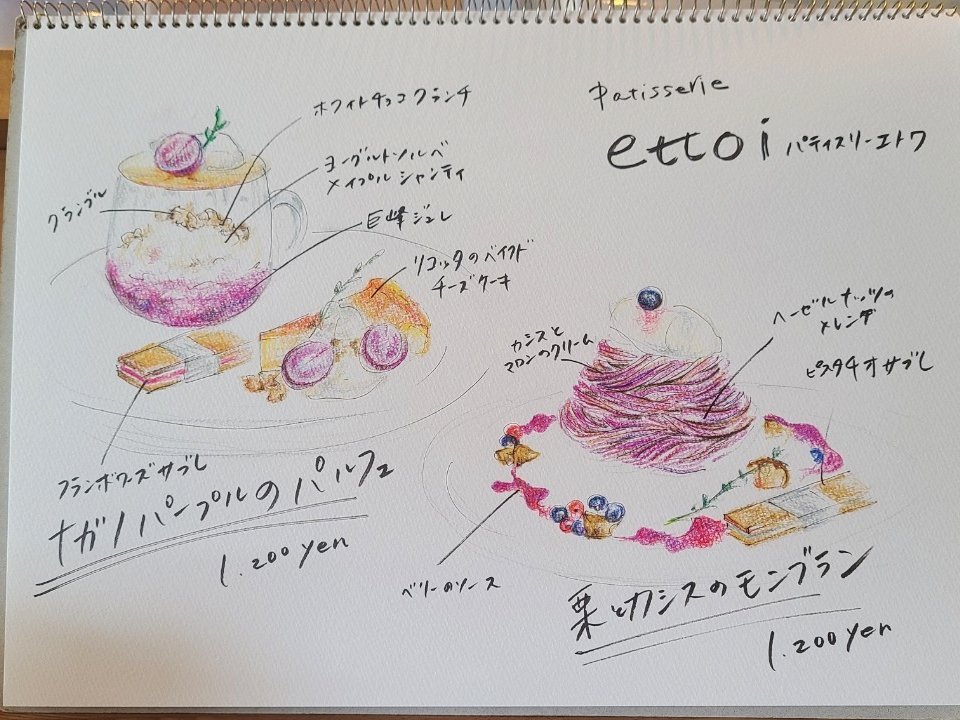 Patisserie
ettoi パティスリーエトワ
ホワイトチョコクランチ
ヨーグルトソルベ
メイプルシャンティ
クランブル
巨峰ジュレ
リコッタのベイクド
チーズケーキ
フランボワーズサブレ
ナガノパープルのパルフェ
1.200yen
カシスと
マロンのクリーム
ヘーゼルナッツの
メレンゲ
ピスタチオサブレ
ベリーのソース
栗とカシスのモンブラン
1.200yen